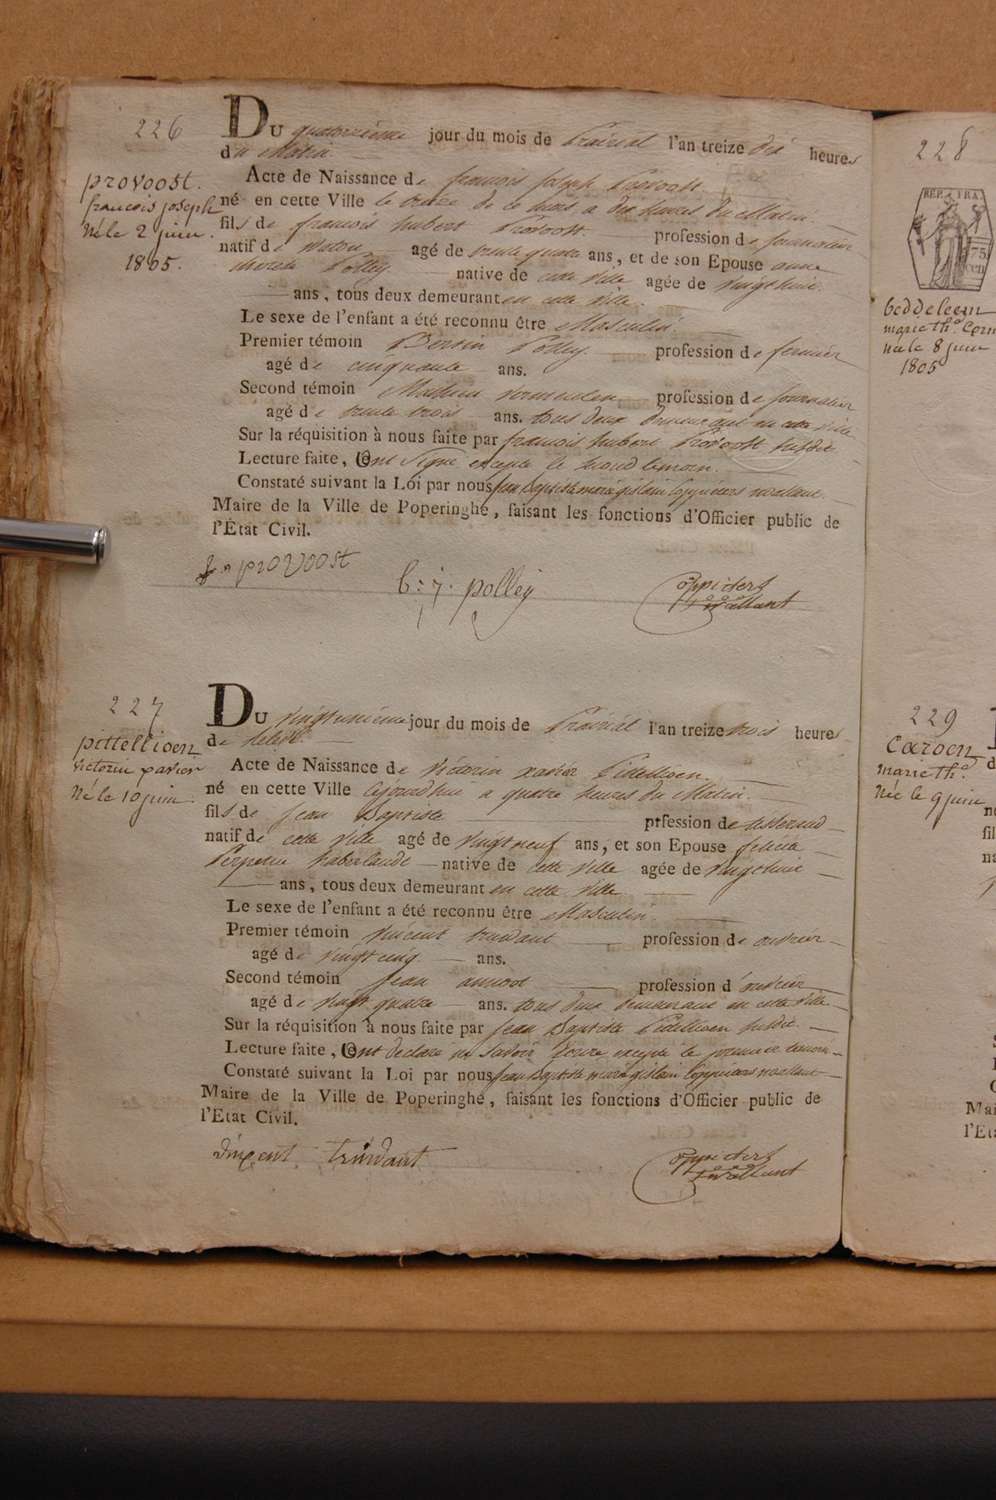 226
Du quatorzième jour du mois de Prairial l'an treize dix heures
du Matin
provoost.
françois joseph
Né le 2 juin.
1805.
Acte de Naissance de françois joseph Provoost
né en cette Ville le treize de ce mois a dix heures du Matin.
fils de françois hubert Provoost. profession de journalier
natif de agé de trente quatre ans, et de son Epouse anne
therese Polley native de cette ville agée de vingt huit
ans, tous deux demeurant en cette ville.
Le sexe de l'enfant a été reconnu être Masculin.
Premier témoin Polley profession de fermier
agé de cinquante ans.
Second témoin Mathieu vermeulen profession de journalier
agé de trente trois ans. tous deux demeurant en cette ville
Sur la réquisition à nous faite par françois hubert Provoost susdit
Lecture faite, ont signé excepté le second temoin.
Constaté suivant la Loi par nous Jean Baptiste marie gislain Coppieters wallant
Maire de la Ville de Poperinghe, faisant les fonctions d'Officier public de
l'État Civil.
provoost
b: j: polley
Coppieters
wallant
227
Du vingtunième jour du mois de Prairial l'an treize trois heures
de relevé
pittellioen
victorin xavier
Né le 10 juin
Acte de Naissance de victorin xavier Pitellioen
né en cette Ville cejourdhui a quatre heures du Matin.
fils de jean Baptiste prfession de tisserand
natif de cette ville agé de vingt neuf ans, et son Epouse felicité
Perpetue haberlandt native de cette ville agée de vingt huit
ans, tous deux demeurant en cette ville
Le sexe de l'enfant a été reconnu être Masculin
Premier témoin vincent truidant profession de ouvrier
agé de vingt cinq ans.
Second témoin jean profession d'ouvrier
agé de vingt quatre ans. tous deux demeurant en cette ville
Sur la réquisition à nous faite par jean Baptiste Pitellioen susdit
Lecture faite, ont declaré ne savoir ecrire excepté le premier temoin
Constaté suivant la Loi par nous Jean Baptiste marie gislain Coppieters wallant
Maire de la Ville de Poperinghe, faisant les fonctions d'Officier public de
l'Etat Civil.
vinçent truidant
Coppieters
wallant
228
REP. FRA.
75
CEN
beddeleem
marie th.
née le 8 juin
1805
229
Caroen
marie th.
Née le 9 juin
né
fil
na
Mai
l'Eta